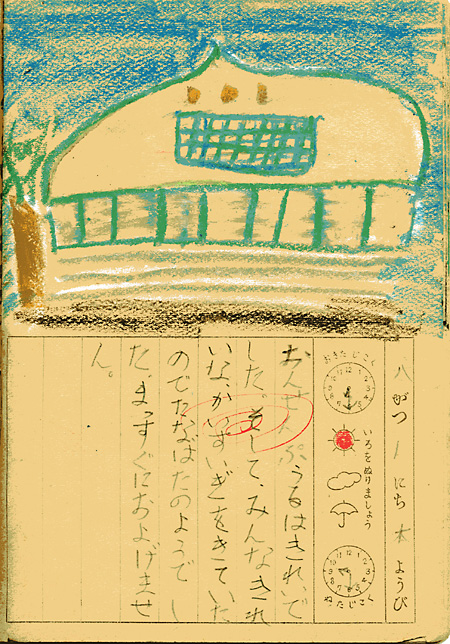 八がつ1にち木ようび
おきたじこく
いろをぬりましょう
ねたじこく
おんせんぷうるはきれいで
した。そして、みんなきれ
いな、かいすいぎをきていた
のでたなばたのようでし
た、まっすぐにおよげませ
ん。